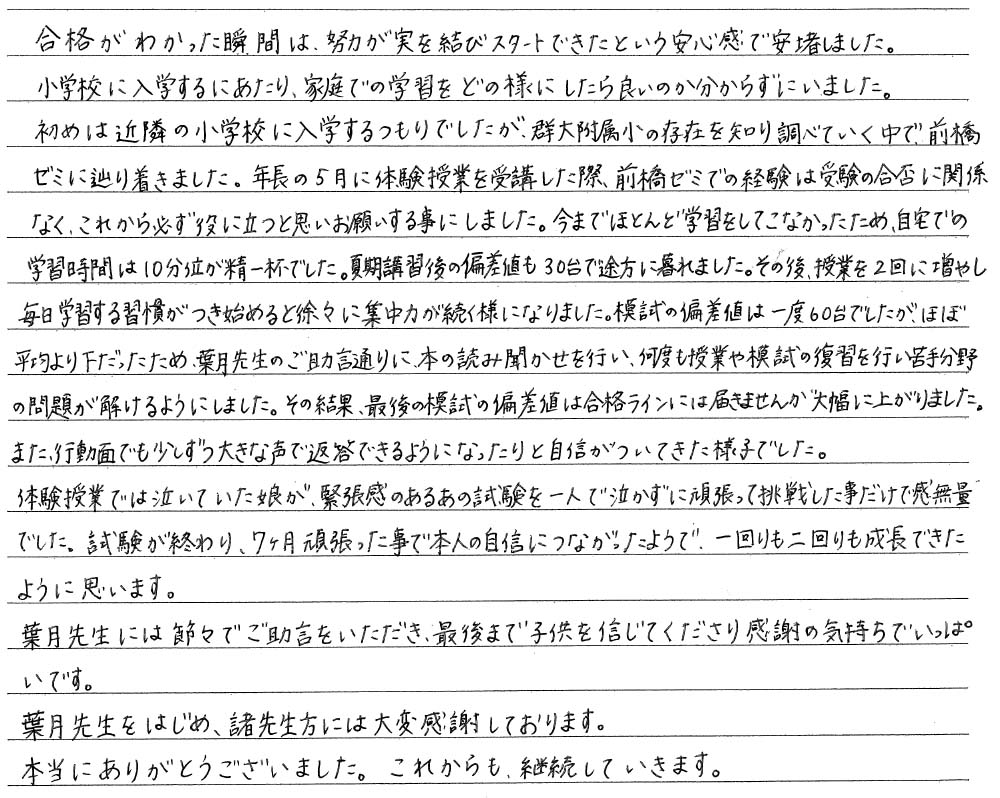 合格がわかった瞬間は、努力が実を結びスタートできたという安心感で安堵しました。
小学校に入学するにあたり、家庭での学習をどの様にしたら良いのか分からずにいました。
初めは近隣の小学校に入学するつもりでしたが、群大附属小の存在を知り調べていく中で、前橋
ゼミに辿り着きました。年長の5月に体験授業を受講した際、前橋ゼミでの経験は受験の合否に関係
なく、これから必ず役に立つと思いお願いする事にしました。今までほとんど学習をしてこなかったため、自宅での
学習時間は10分位が精一杯でした。夏期講習後の偏差値も30台で途方に暮れました。その後、授業を2回に増やし
毎日学習する習慣がつき始めると徐々に集中力が続く様になりました。模試の偏差値は一度60台でしたが、ほぼ
平均より下だったため、葉月先生のご助言通りに、本の読み聞かせを行い、何度も授業や模試の復習を行い苦手分野
の問題が解けるようにしました。その結果、最後の模試の偏差値は合格ラインには届きませんが大幅に上がりました。
また、行動面でも少しずつ大きな声で返答できるようになったりと自信がついてきた様子でした。
体験授業では泣いていた娘が、緊張感のあるあの試験を一人で泣かずに頑張って挑戦した事だけで感無量
でした。試験が終わり、7ヶ月頑張った事で本人の自信につながったようで、一回りも二回りも成長できた
ように思います。
葉月先生には節々でご助言をいただき、最後まで子供を信じてくださり感謝の気持ちでいっぱ
いです。
葉月先生をはじめ、諸先生方には大変感謝しております。
本当にありがとうございました。これからも、継続していきます。